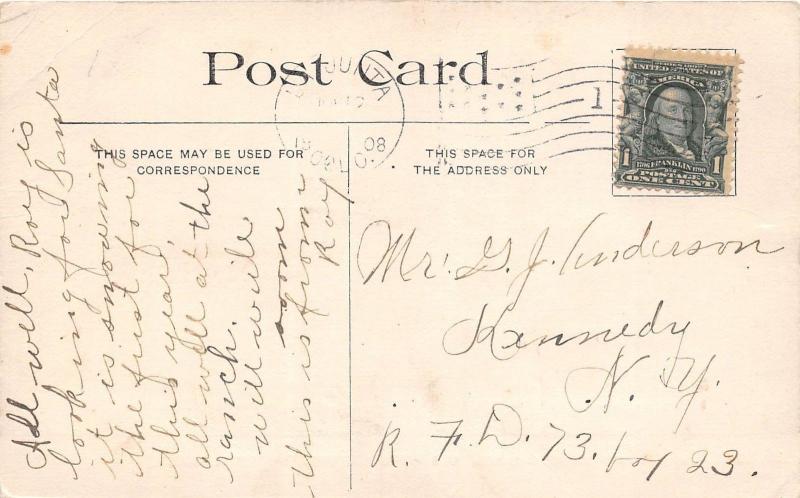 Post Card
JUNTA
08
COLO.
1
SERIES 1902
UNITED STATES OF
AMERICA
1 FRANKLIN 1
POSTAGE
ONE CENT
THIS SPACE MAY BE USED FOR
CORRESPONDENCE
THIS SPACE FOR
THE ADDRESS ONLY
All well, Roy is
looking for Santa
it is snowing
the first for
this year,
all well at the
ranch.
will write
soon
this is from
Roy
Mr. G. J. Anderson
Kennedy
N. Y.
R. F. D. 73. box 23.